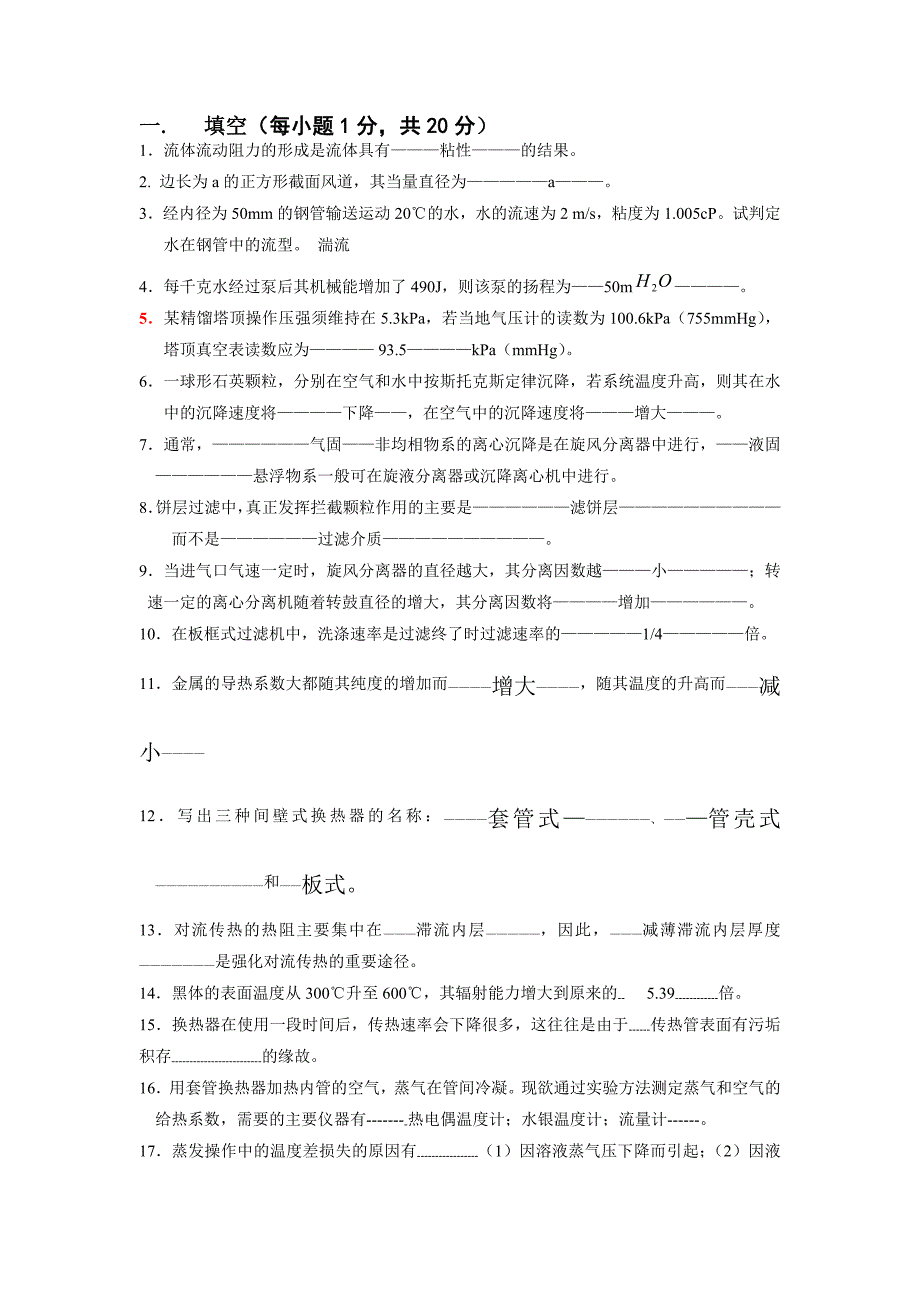 一．　填空（每小题1分，共20分）
1．流体流动阻力的形成是流体具有———粘性———的结果。
2. 边长为a的正方形截面风道，其当量直径为—————a———。
3．经内径为50mm的钢管输送运动20℃的水，水的流速为2 m/s，粘度为1.005cP。试判定
水在钢管中的流型。 湍流
4．每千克水经过泵后其机械能增加了490J，则该泵的扬程为——50m H₂O ————。
5．某精馏塔顶操作压强须维持在5.3kPa，若当地气压计的读数为100.6kPa（755mmHg），
塔顶真空表读数应为———— 93.5————kPa（mmHg）。
6．一球形石英颗粒，分别在空气和水中按斯托克斯定律沉降，若系统温度升高，则其在水
中的沉降速度将————下降——，在空气中的沉降速度将———增大———。
7．通常，——————气固——非均相物系的离心沉降是在旋风分离器中进行，——液固
——————悬浮物系一般可在旋液分离器或沉降离心机中进行。
8．饼层过滤中，真正发挥拦截颗粒作用的主要是——————滤饼层——————————
而不是——————过滤介质——————————。
9．当进气口气速一定时，旋风分离器的直径越大，其分离因数越———小—————；转
速一定的离心分离机随着转鼓直径的增大，其分离因数将————增加——————。
10．在板框式过滤机中，洗涤速率是过滤终了时过滤速率的—————1/4—————倍。
11．金属的导热系数大都随其纯度的增加而————增大————，随其温度的升高而———减
小————
12．写出三种间壁式换热器的名称：————套管式———————、———管壳式
——————————和——板式。
13．对流传热的热阻主要集中在———滞流内层—————，因此，———减薄滞流内层厚度
———————是强化对流传热的重要途径。
14．黑体的表面温度从300℃升至600℃，其辐射能力增大到原来的--　5.39------------倍。
15．换热器在使用一段时间后，传热速率会下降很多，这往往是由于------传热管表面有污垢
积存-------------------------的缘故。
16．用套管换热器加热内管的空气，蒸气在管间冷凝。现欲通过实验方法测定蒸气和空气的
给热系数，需要的主要仪器有-------.热电偶温度计；水银温度计；流量计------。
17．蒸发操作中的温度差损失的原因有-----------------（1）因溶液蒸气压下降而引起；（2）因液